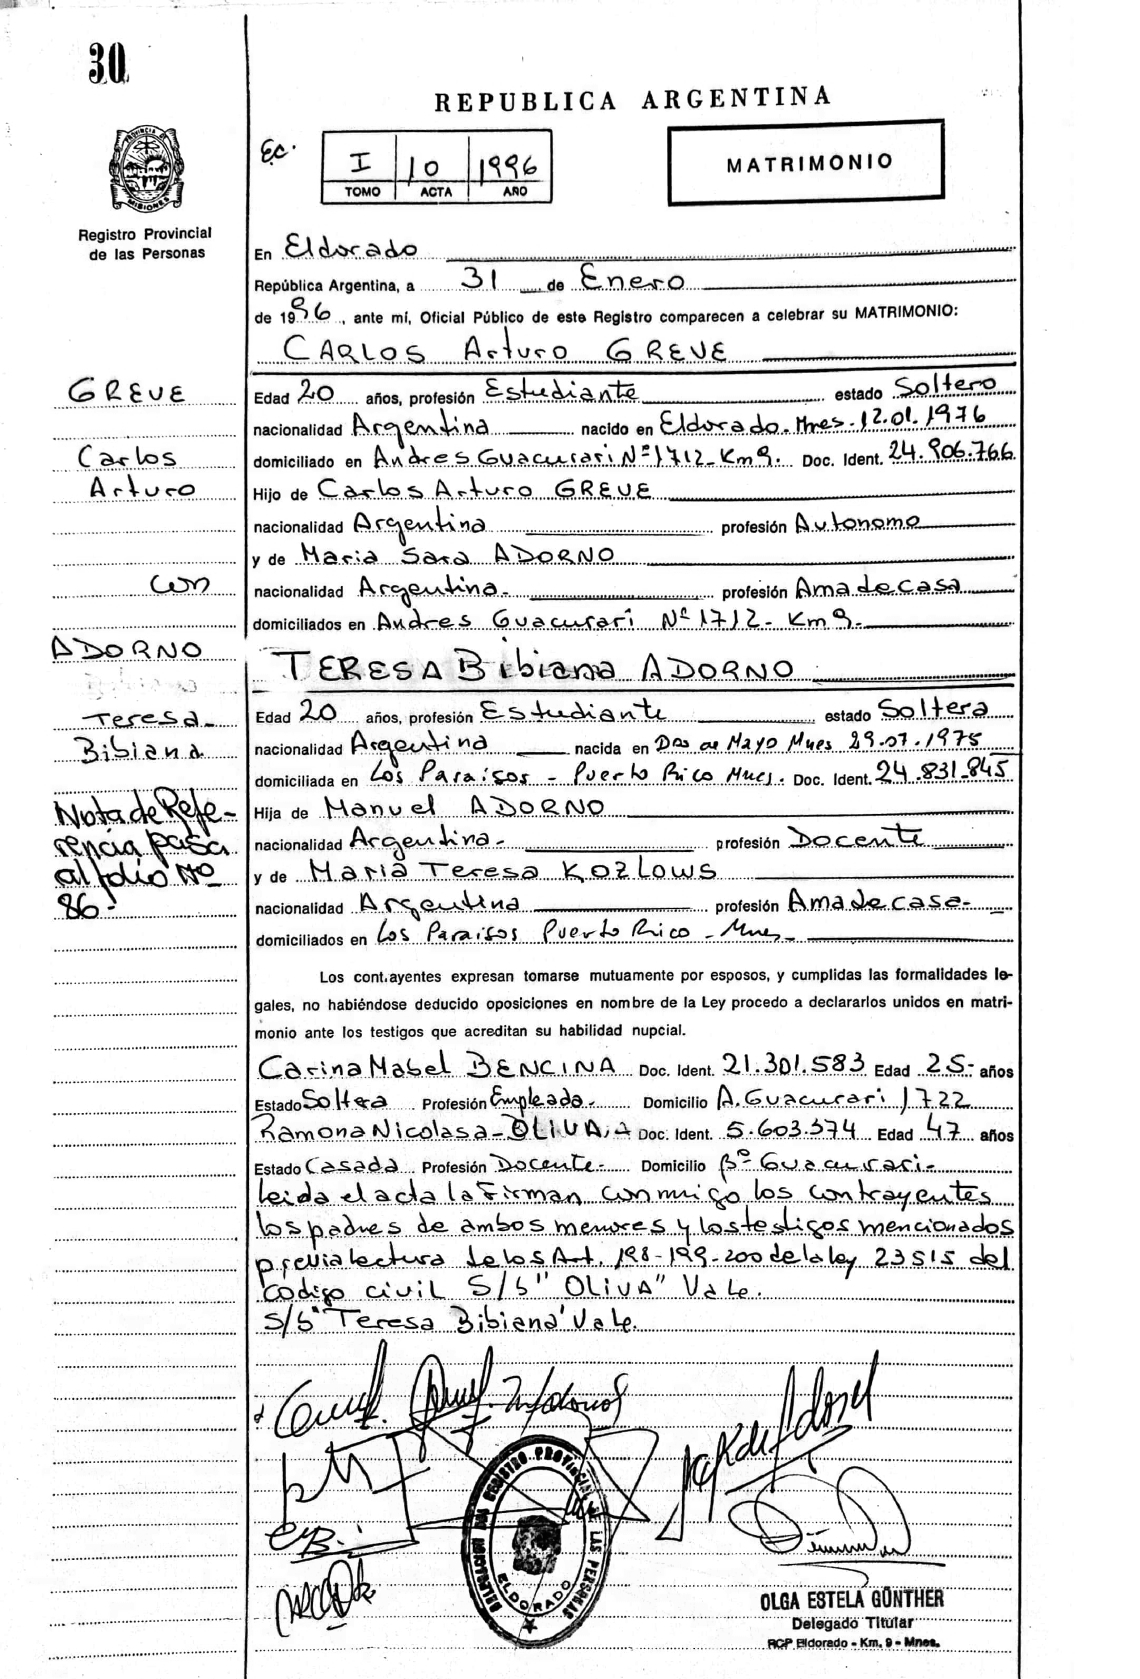 30
REPUBLICA ARGENTINA
Ec.
I 10 1996
TOMO ACTA AÑO
MATRIMONIO
PROVINCIA DE MISIONES
Registro Provincial
de las Personas
En Eldorado
República Argentina, a 31 de Enero
de 1996, ante mí, Oficial Público de este Registro comparecen a celebrar su MATRIMONIO:
CARLOS Arturo GREVE
GREVE
Carlos
Arturo
con
ADORNO
Teresa
Bibiana
Nota de Refe-
rencia pasa
al folio Nº
86-
Edad 20 años, profesión Estudiante estado Soltero
nacionalidad Argentina nacido en Eldorado. Mnes. 12.01.1976
domiciliado en Andres Guacurari Nº 1712-Km 9. Doc. Ident. 24.906.766
Hijo de Carlos Arturo GREVE
nacionalidad Argentina profesión Autonomo
y de Maria Sara ADORNO
nacionalidad Argentina- profesión Ama de casa
domiciliados en Andres Guacurari Nº 1712- Km 9-
TERESA Bibiana ADORNO
Edad 20 años, profesión Estudiante estado Soltera
nacionalidad Argentina nacida en Dos de Mayo Mnes 29.07.1975
domiciliada en Los Paraisos - Puerto Rico Mnes. Doc. Ident. 24.831.845
Hija de Manuel ADORNO
nacionalidad Argentina- profesión Docente
y de Maria Teresa KOZLOWS
nacionalidad Argentina profesión Ama de casa-
domiciliados en Los Paraisos Puerto Rico - Mnes-
Los cont.ayentes expresan tomarse mutuamente por esposos, y cumplidas las formalidades le-
gales, no habiéndose deducido oposiciones en nombre de la Ley procedo a declararlos unidos en matri-
monio ante los testigos que acreditan su habilidad nupcial.
Carina Mabel BENCINA Doc. Ident. 21.301.583 Edad 25- años
Estado Soltera Profesión Empleada- Domicilio A. Guacurari 1722
Ramona Nicolasa- OLIVA Doc. Ident. 5.603.574 Edad 47 años
Estado Casada Profesión Docente- Domicilio Bº Guacurari-
leida el acta la firman conmigo los contrayentes
los padres de ambos menores y los testigos mencionados
previa lectura de los Art. 198-199-200 de la ley 23515 del
Codigo civil S/b "OLIVA" Vale.
S/b "Teresa Bibiana" Vale.
DELEGACION DEL REGISTRO PROVINCIAL DE LAS PERSONAS
ELDORADO
OLGA ESTELA GÜNTHER
Delegado Titular
RCP Eldorado - Km. 9 - Mnes.